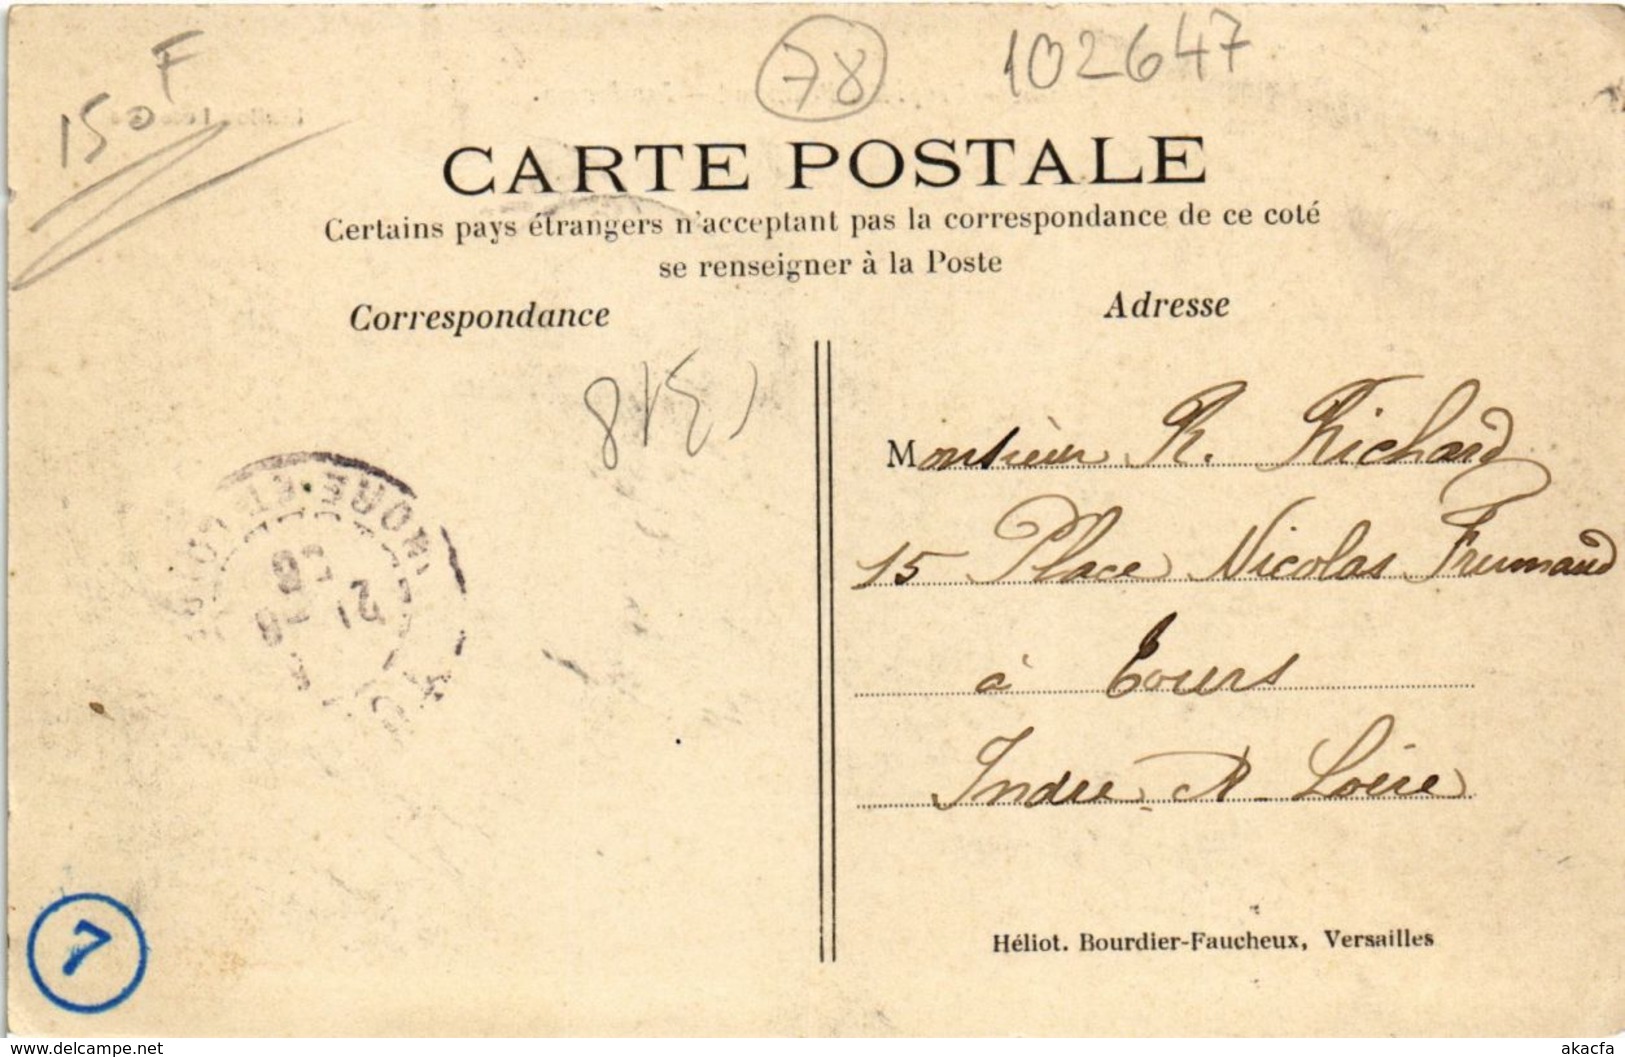 150F
78
102647
CARTE POSTALE
Certains pays étrangers n'acceptant pas la correspondance de ce coté
se renseigner à la Poste
Correspondance
Adresse
Monsieur R. Richard
15 Place Nicolas Frumaud
à Tours
Indre - & - Loire
21
7
Héliot. Bourdier-Faucheux, Versailles
delcampe.net
akacfa